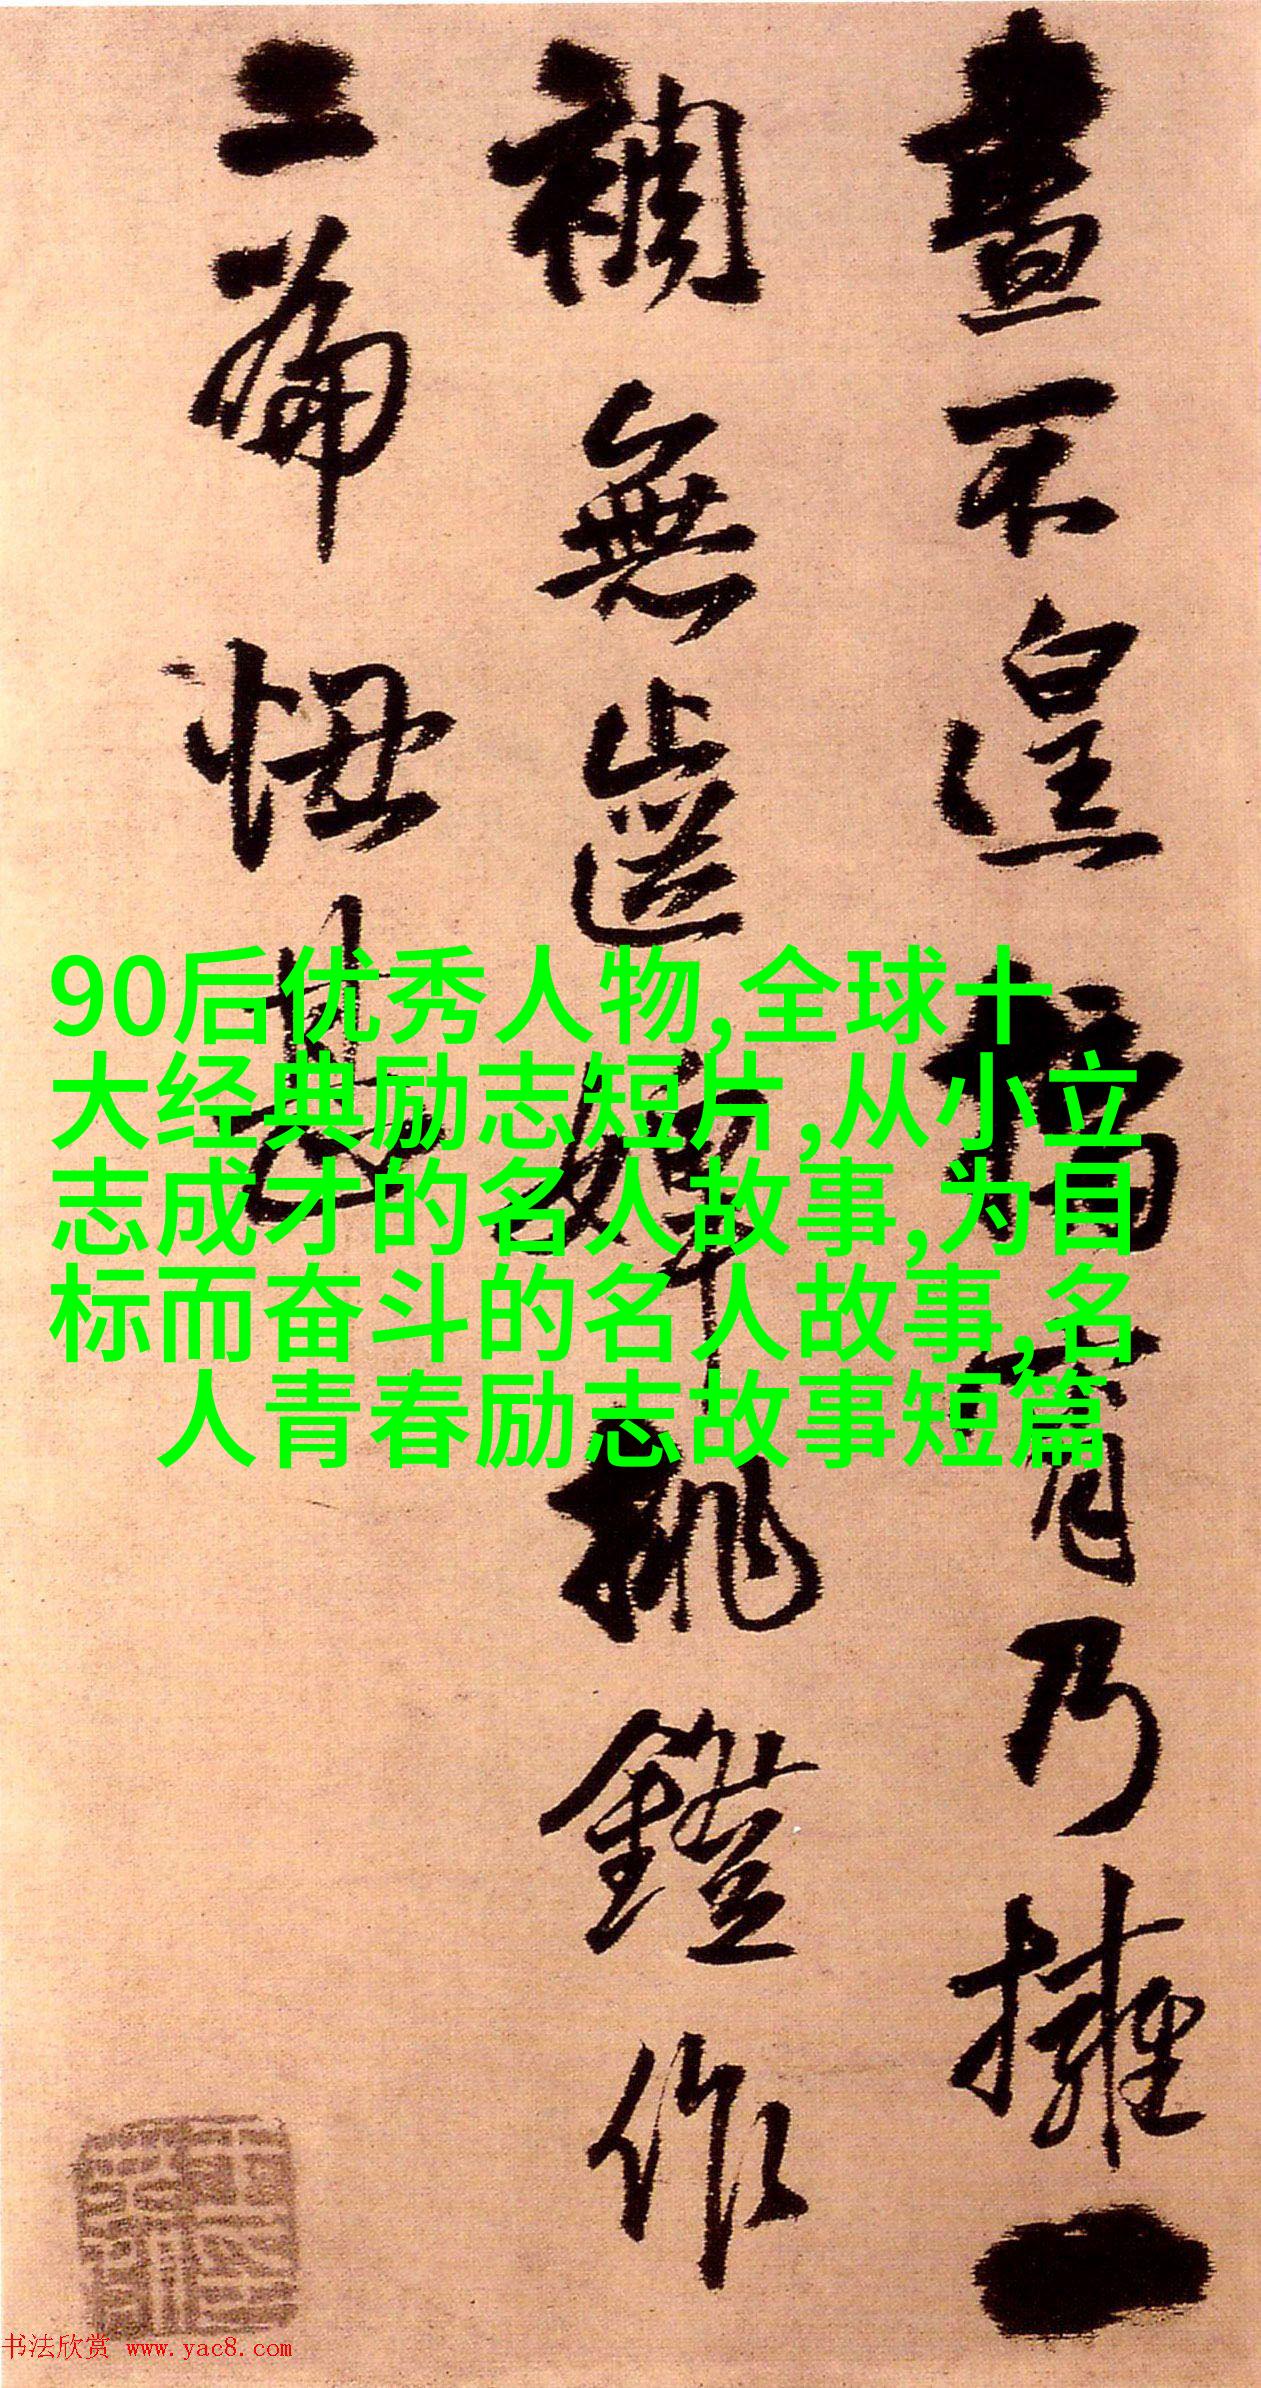 晝不遑宵乃擁一
裯無齒婢挑鐙作
二篇甚
90后优秀人物,全球十
大经典励志短片,从小立
志成才的名人故事,为目
标而奋斗的名人故事,名
人青春励志故事短篇
书法欣赏 www.yac8.com